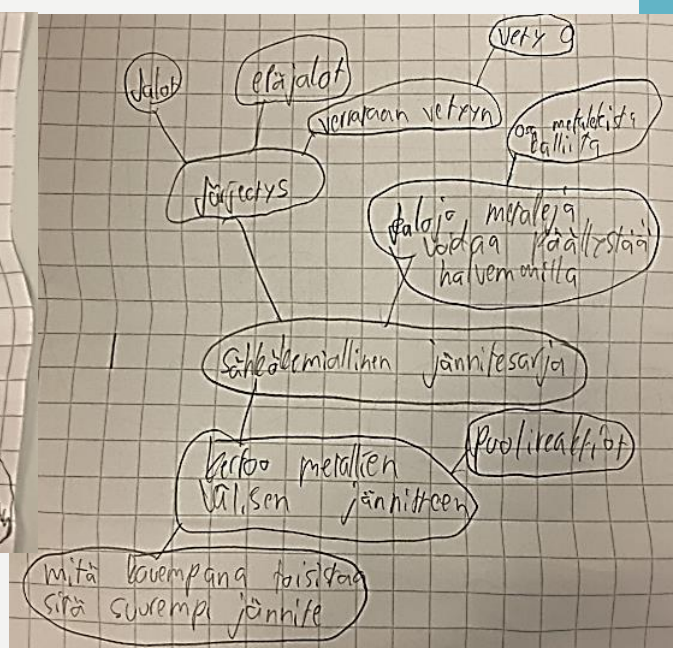 vety 0
Jalot
epäjalot
verrataan vetyyn
On metaleista
kalliita
Järjestys
Jaloja metaleja
voidaa päällystää
halvemmilla
Sähkökemiallinen jännitesarja
kertoo metallien
välisen jännitteen
Puolireaktiot
mitä kauempana toisistaa
sitä suurempi jännite